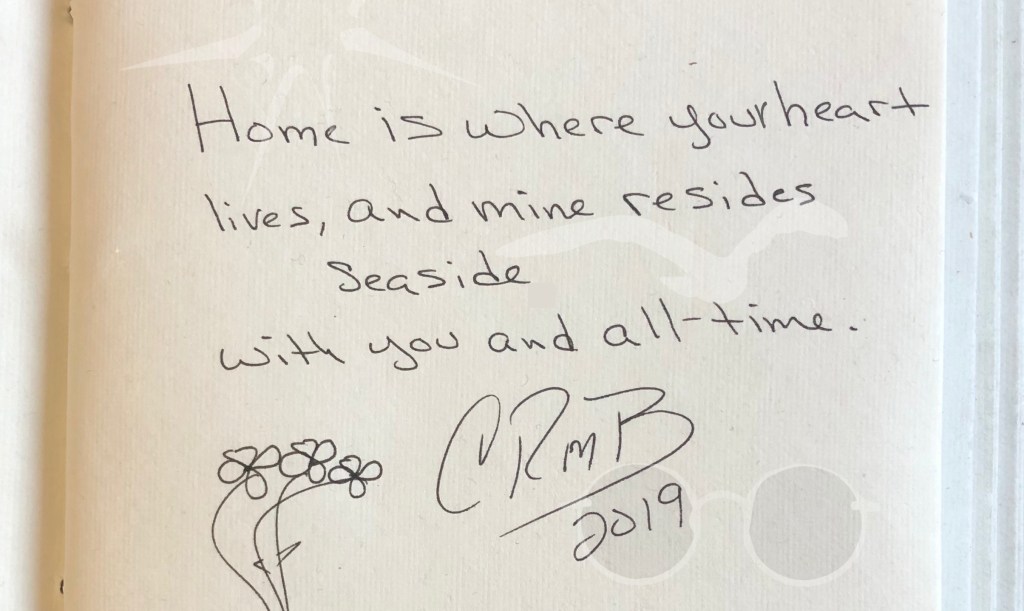 Home is where your heart
lives, and mine resides
Seaside
with you and all-time.
CRMB
2019